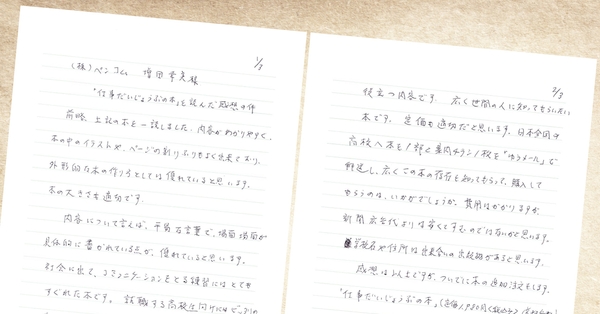 1/3
(株)ペンコム 増田幸美様
"仕事だいじょうぶの本"を読んだ感想の件
前略、上記の本を一読しました。内容がわかりやすく、
本の中のイラストや、ページの割りふりもよく出来ており、
外形的な本の作り方としては優れていると思います。
本の大きさも適切です。
内容について言えば、平易な言葉で、場面場面が
具体的に書かれている点が、優れていると思います。
社会に出て、コミュニケーションをとる練習にはとても
すぐれた本です。就職する高校生向けには
2/3
役立つ内容です。広く世間の人に知ってもらいたい
本です。定価も適切だと思います。日本全国の
高校へ本を1部と案内チラシ1枚を"ゆうメール"で
郵送し、広くこの本の存在を知ってもらって、購入して
もらうのは、いかがでしょうか。費用はかかりますが、
新聞広告代よりは安くてすむのではないかと思います。
学校名や住所は
感想は以上ですが、ついでに本の追加注文をします。
"仕事だいじょうぶの本"(定価1,980円(税込み)